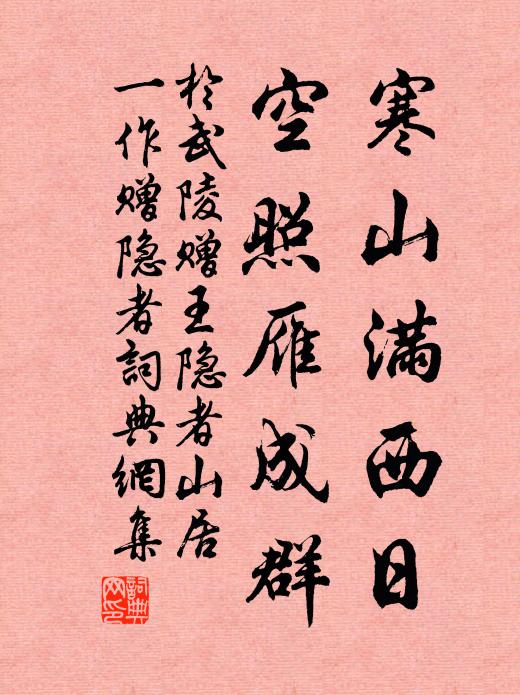 寒山满西日
空照雁成群
於武陵赠王隐者山居
一作赠隐者詞典網集
詞典网印